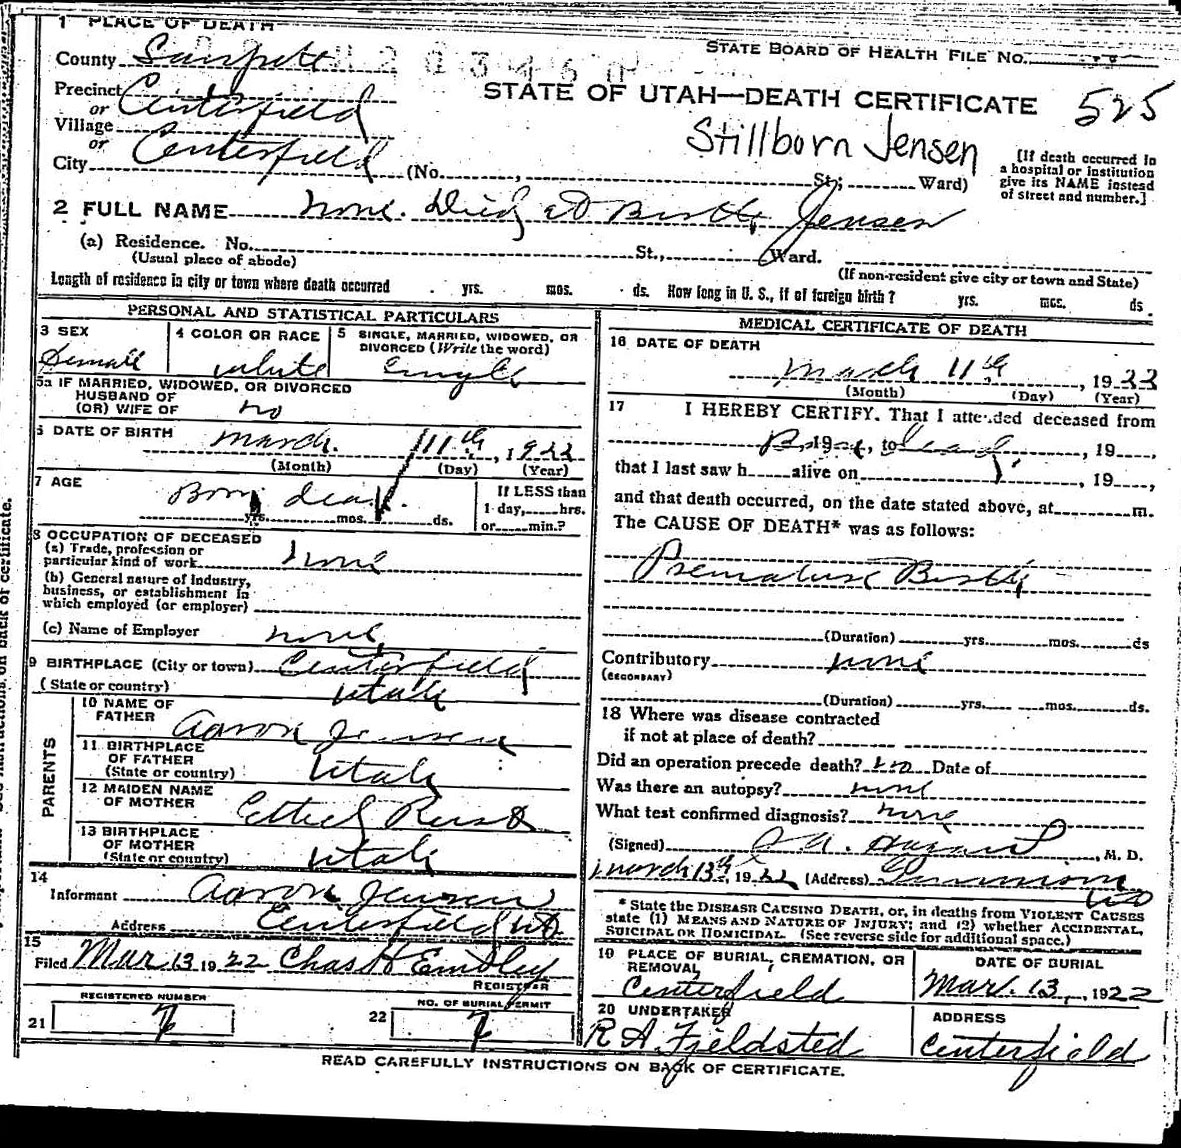 1 PLACE OF DEATH
STATE BOARD OF HEALTH FILE NO.
County Sanpete
STATE OF UTAH—DEATH CERTIFICATE 525
Precinct Centerfield
or
Village
or
Stillborn Jensen
City Centerfield (No. , St.; Ward)
[If death occurred in a hospital or institution give its NAME instead of street and number.]
2 FULL NAME none. Died at Birth, Jensen
(a) Residence. No. St., Ward.
(Usual place of abode) (If non-resident give city or town and State)
Length of residence in city or town where death occurred yrs. mos. ds. How long in U. S., if of foreign birth? yrs. mos. ds.
PERSONAL AND STATISTICAL PARTICULARS
3 SEX Female
4 COLOR OR RACE white
5 SINGLE, MARRIED, WIDOWED, OR DIVORCED (Write the word) Single
5a IF MARRIED, WIDOWED, OR DIVORCED
HUSBAND OF
(OR) WIFE OF no
6 DATE OF BIRTH March. 11th, 1922
(Month) (Day) (Year)
7 AGE Born dead.
yrs. mos. ds.
If LESS than
1 day, hrs.
or min.?
8 OCCUPATION OF DECEASED
(a) Trade, profession or
particular kind of work none
(b) General nature of industry,
business, or establishment in
which employed (or employer)
(c) Name of Employer none
9 BIRTHPLACE (City or town) Centerfield
(State or country) Utah
PARENTS
10 NAME OF
FATHER Aaron Jensen
11 BIRTHPLACE
OF FATHER
(State or country) Utah
12 MAIDEN NAME
OF MOTHER Ethel
13 BIRTHPLACE
OF MOTHER
(State or country) Utah
14
Informant Aaron Jensen
Address Centerfield Ut
15
Filed Mar 13 1922 Chas H Embley
REGISTRAR
REGISTERED NUMBER
21 7
NO. OF BURIAL PERMIT
22 7
MEDICAL CERTIFICATE OF DEATH
16 DATE OF DEATH
March 11th, 1922
(Month) (Day) (Year)
17 I HEREBY CERTIFY. That I attended deceased from
19, to , 19,
that I last saw h alive on , 19,
and that death occurred, on the date stated above, at m.
The CAUSE OF DEATH* was as follows:
Premature Birth
(Duration) yrs. mos. ds
Contributory none
(SECONDARY)
(Duration) yrs. mos. ds.
18 Where was disease contracted
if not at place of death?
Did an operation precede death? no Date of
Was there an autopsy? none
What test confirmed diagnosis? none
(Signed) , M. D.
March 13th, 1922 (Address) Gunnison
Ut
* State the DISEASE CAUSING DEATH, or, in deaths from VIOLENT CAUSES
state (1) MEANS AND NATURE OF INJURY; and (2) whether ACCIDENTAL,
SUICIDAL OR HOMICIDAL. (See reverse side for additional space.)
19 PLACE OF BURIAL, CREMATION, OR
REMOVAL
Centerfield
DATE OF BURIAL
Mar. 13, 1922
20 UNDERTAKER
R A. Fjeldsted
ADDRESS
Centerfield
READ CAREFULLY INSTRUCTIONS ON BACK OF CERTIFICATE.